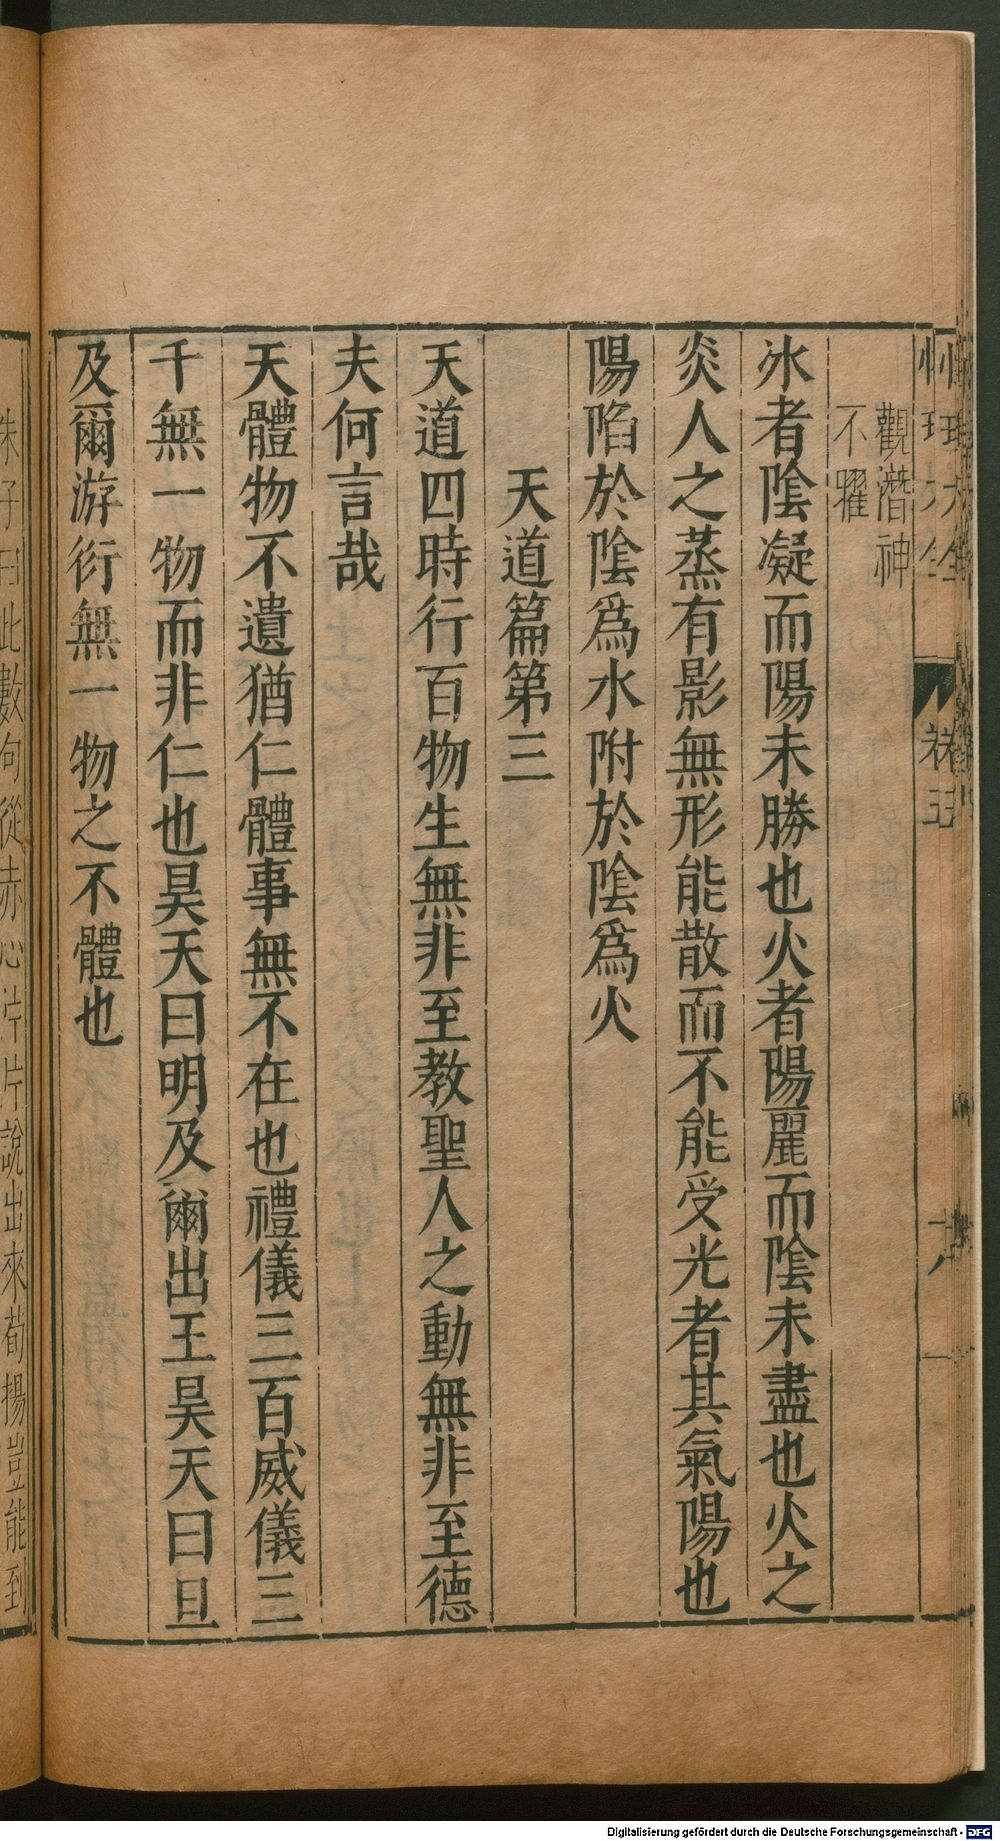 觀潛神
不曜
冰者陰凝而陽未勝也火者陽麗而陰未盡也火之
炎人之蒸有影無形能散而不能受光者其氣陽也
陽陷於陰爲水附於陰爲火
天道篇第三
天道四時行百物生無非至教聖人之動無非至德
夫何言哉
天體物不遺猶仁體事無不在也禮儀三百威儀三
千無一物而非仁也昊天曰明及爾出王昊天曰旦
及爾游衍無一物之不體也
朱子曰此數句從赤心片片說出來荀揚豈能到
Digitalisierung gefördert durch die Deutsche Forschungsgemeinschaft - DFG